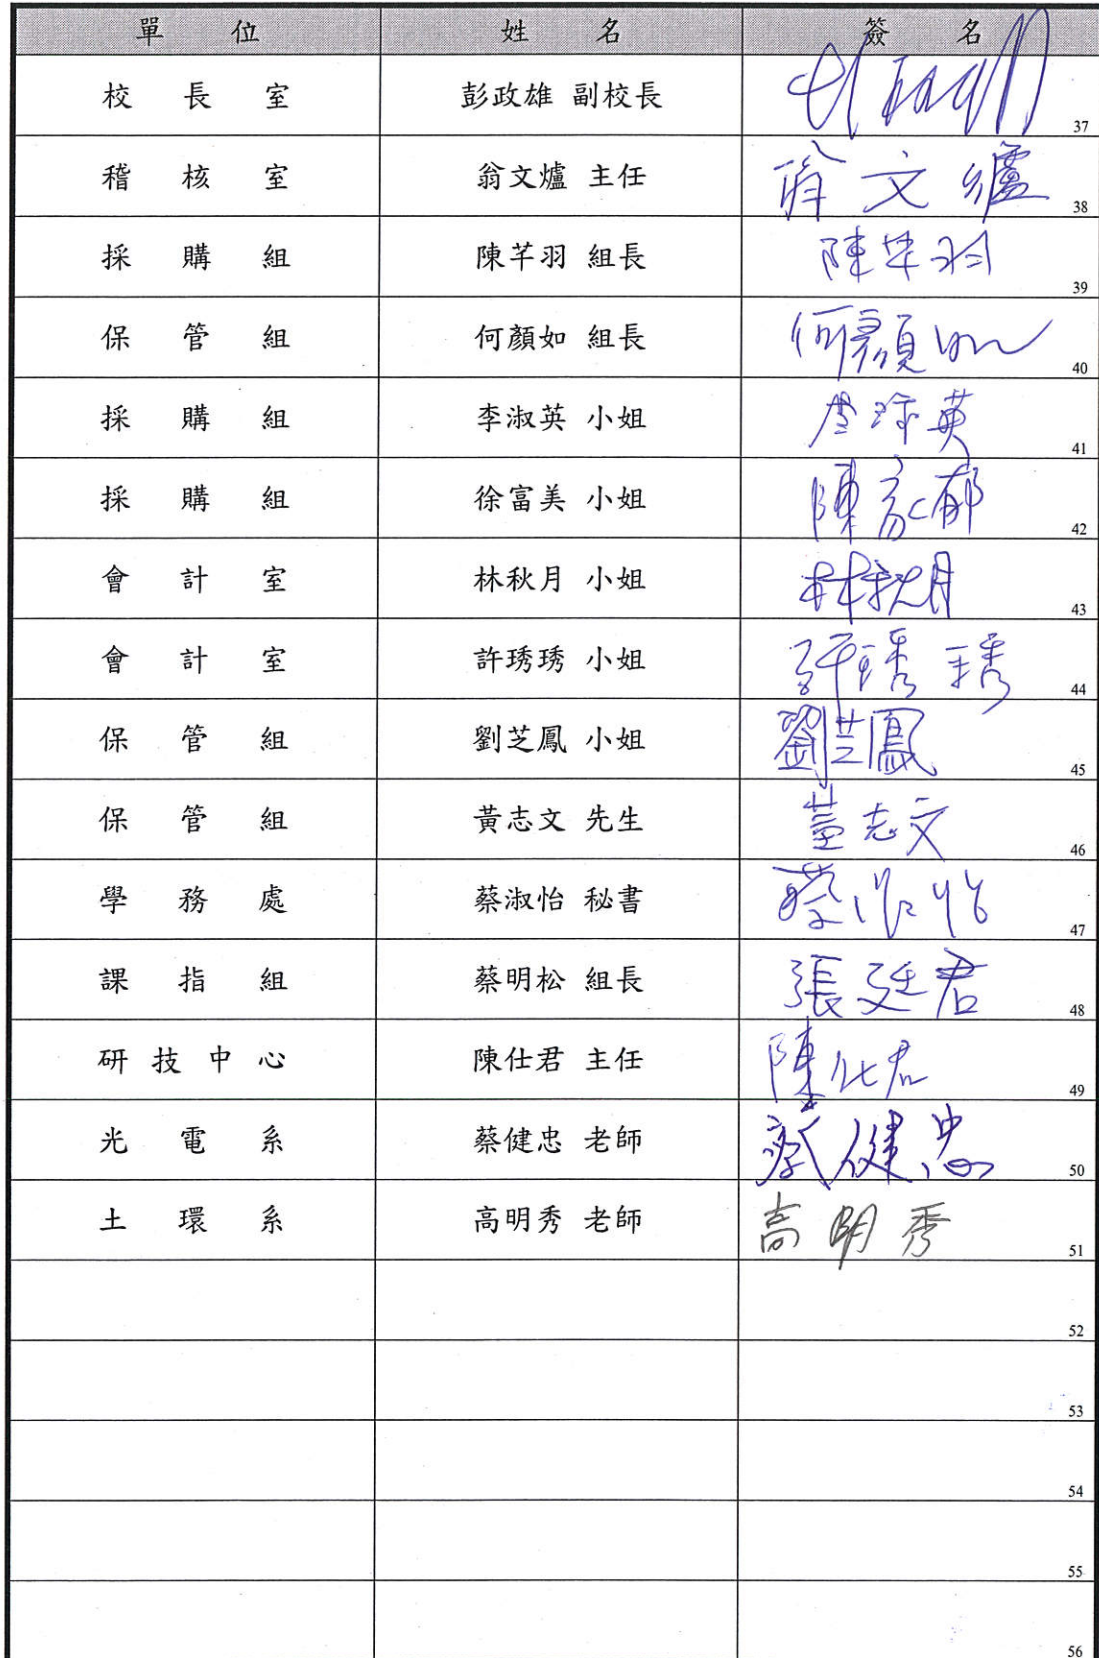 單位 姓名 簽名
校長室 彭政雄 副校長 37
稽核室 翁文爐 主任 翁文爐 38
採購組 陳芊羽 組長 陳芊羽 39
保管組 何顏如 組長 何顏如 40
採購組 李淑英 小姐 41
採購組 徐富美 小姐 陳家郁 42
會計室 林秋月 小姐 林秋月 43
會計室 許琇琇 小姐 許琇琇 44
保管組 劉芝鳳 小姐 劉芝鳳 45
保管組 黃志文 先生 黃志文 46
學務處 蔡淑怡 秘書 蔡淑怡 47
課指組 蔡明松 組長 張廷君 48
研技中心 陳仕君 主任 陳仕君 49
光電系 蔡健忠 老師 蔡健忠 50
土環系 高明秀 老師 高明秀 51
52
53
54
55
56